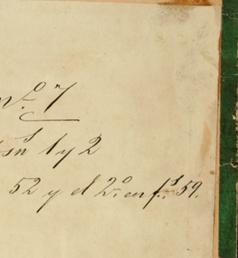 Nº 7
1 y 2
52 y el 2º en fs. 59.